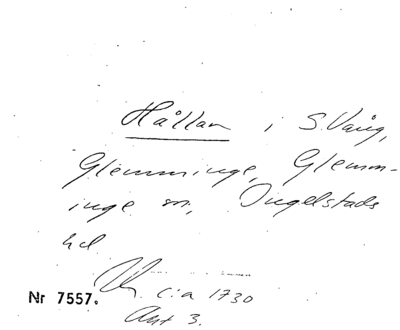 Hållan i S. Vång,
Glemminge, Glemm-
inge sn, Ingelstads
hd
Nr 7557. cia 1730
Akt 3.